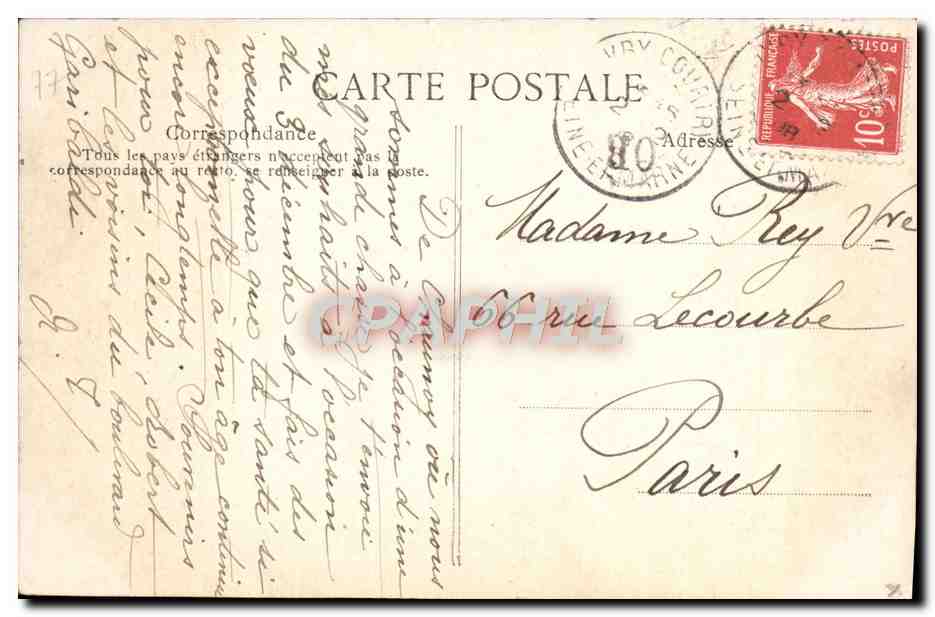 CARTE POSTALE
Correspondance
Tous les pays étrangers n'acceptent pas la
correspondance au recto, se renseigner à la poste.
Adresse
De Crannoy où nous
sommes à l'occasion d'une
grande chasse je t'envoie
mes souhaits à l'occasion
du 3 décembre et fais des
voeux pour que ta santé si
exceptionnelle à ton âge continue
encore longtemps. Souvenirs
pour toi, Cécile, Robert
et les voisins du boulevard
Garibaldi.
Madame Rey Vve
66 rue Lecourbe
Paris
REPUBLIQUE FRANÇAISE
POSTES
10c
SEINE-ET-MARNE
CPAPHIL
77